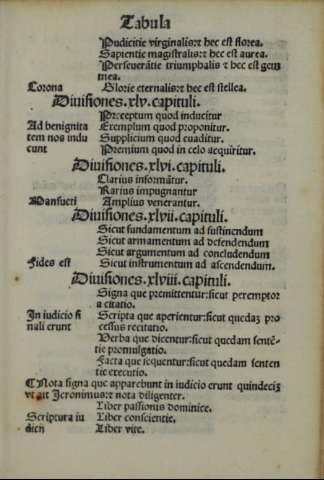 Tabula
Pudicitie virginalis:⁊ hec est florea.
Sapientie magistralis:⁊ hec est aurea.
Perseverãtie triumphalis ⁊ hec est gem
mea.
Corona Glorie eternalis:⁊ hec est stellea.
Divisiones.xlv.capituli.
Preceptum quod inducitur
Ad benignita Exemplum quod proponitur.
tem nos indu Supplicium quod evaditur.
cunt Premium quod in celo acquiritur.
Divisiones.xlvi.capituli.
Clarius informãtur.
Rarius impugnantur
Mansueti Amplius venerantur.
Divisiones.xlvii.capituli.
Sicut fundamentum ad sustinendum
Sicut armamentum ad defendendum
Sicut argumentum ad concludendum
Fides est Sicut instrumentum ad ascendendum.
Divisiones.xlviii.capituli.
Signa que premittentur:sicut peremptor
a citatio.
In iudicio fi Scripta que aperientur:sicut quedaʒ pro
nali erunt cessus recitatio.
Verba que dicentur:sicut quedam sentẽ-
tie promulgatio.
Facta que sequentur:sicut quedam senten
tie executio.
¶ Nota signa que apparebunt in iudicio erunt quindeciʒ
vt ait Jeronimus:⁊ nota diligenter.
Liber passionis dominice.
Scriptura iu Liber conscientie.
dicij Liber vite.